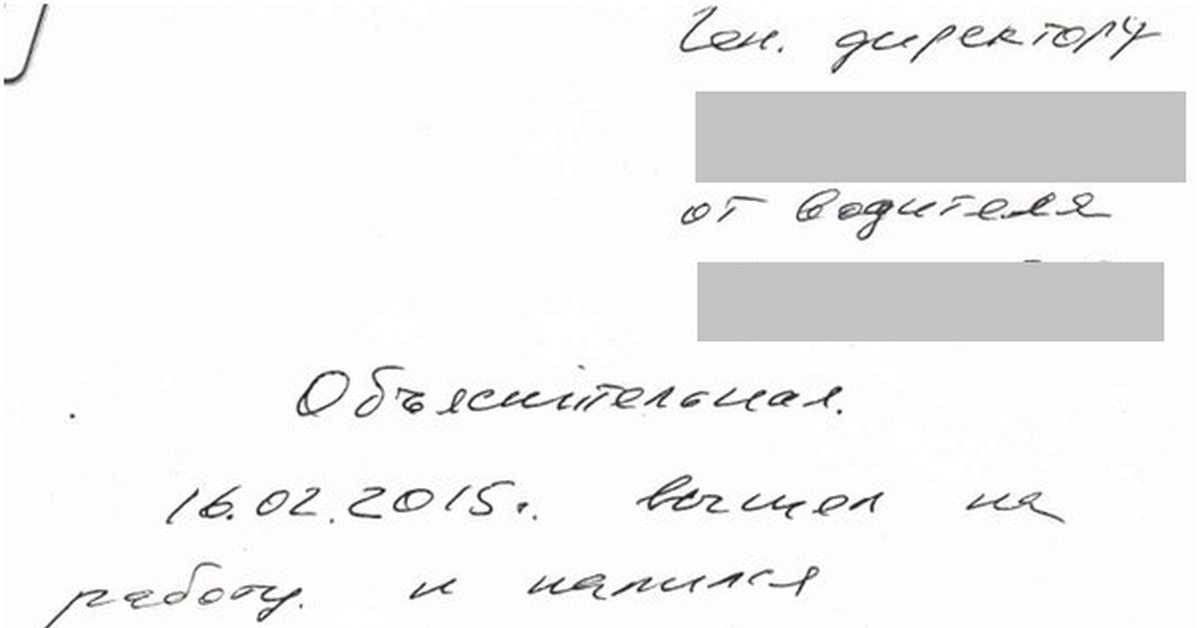 Ген. директору
от водителя
Объяснительная.
16.02.2015г. вышел на
работу. и напился